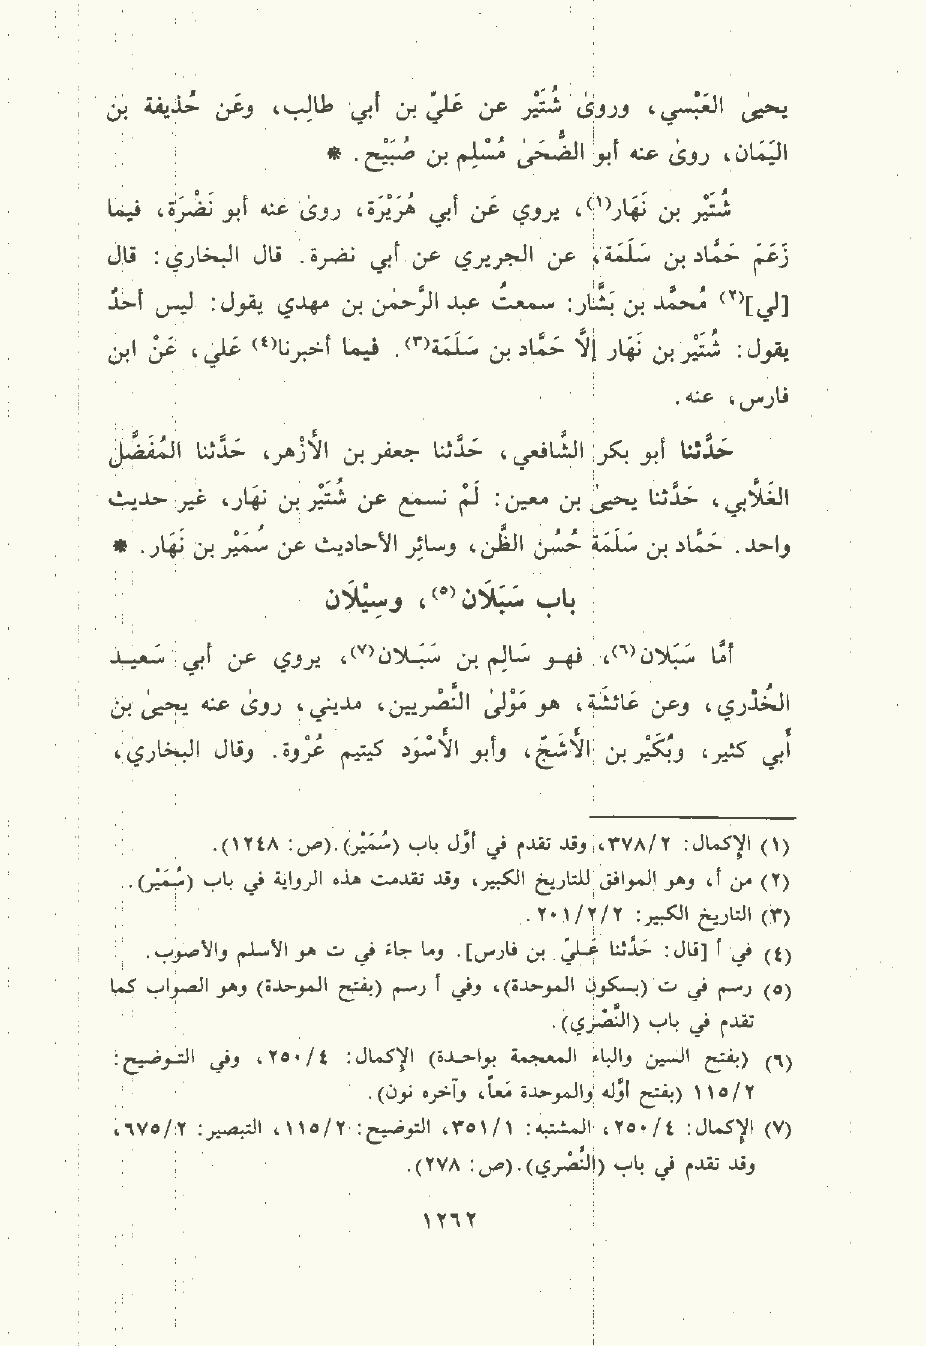 يحيىٰ العَبْسي، وروىٰ شُتَيْر عن عَليّ بن أبي طالِب، وعَن حُذيفة بن
اليَمَان، روىٰ عنه أبو الضُّحَىٰ مُسْلِم بن صُبَيْح. *
شُتَيْر بن نَهَار(١)، يروي عَن أبي هُرَيْرَة، روىٰ عنه أبو نَضْرَة، فيما
زَعَمَ حَمَّاد بن سَلَمَة، عن الجريري عن أبي نضرة. قال البخاري: قال
[لي](٢) مُحمَّد بن بَشَّار: سمعتُ عبد الرَّحمٰن بن مهدي يقول: ليس أحدٌ
يقول: شُتَيْر بن نَهَار إلَّا حَمَّاد بن سَلَمَة(٣). فيما أخبرنا(٤) عَلي، عَنْ ابن
فارس، عنه.
حَدَّثنا أبو بكر الشَّافعي، حَدَّثنا جعفر بن الأَزْهر، حَدَّثنا المُفَضَّل
الغَلَّابي، حَدَّثنا يحيىٰ بن معين: لَمْ نسمع عن شُتَيْر بن نَهَار، غير حديث
واحد. حَمَّاد بن سَلَمَة حُسُن الظَّن، وسائِر الأحاديث عن سُمَيْر بن نَهَار. *
باب سَبَلَان(٥)، وسِيْلَان
أمَّا سَبَلَان(٦)، فهو سَالِم بن سَبَلان(٧)، يروي عن أبي سَعيد
الخُدْري، وعن عَائشَة، هو مَوْلىٰ النَّصْريين، مديني، روىٰ عنه يحيىٰ بن
أَبي كثير، وبُكَيْر بن الأَشَجّ، وأبو الأَسْوَد كيتيم عُرْوة. وقال البخاري،
(١) الإكمال: ٣٧٨/٢، وقد تقدم في أوَّل باب (سُمَيْر).(ص: ١٢٤٨).
(٢) من أ، وهو الموافق للتاريخ الكبير، وقد تقدمت هذه الرواية في باب (سُمَيْر).
(٣) التاريخ الكبير: ٢٠١/٢/٢.
(٤) في أ [قال: حَدَّثنا عَليّ بن فارس]. وما جاء في ت هو الأسلم والأصوب.
(٥) رسم في ت (بسكون الموحدة)، وفي أ رسم (بفتح الموحدة) وهو الصواب كما
تقدم في باب (النَّصْري).
(٦) (بفتح السين والباء المعجمة بواحدة) الإكمال: ٢٥٠/٤، وفي التوضيح:
١١٥/٢ (بفتح أوَّله والموحدة مَعاً، وآخره نون).
(٧) الإكمال: ٢٥٠/٤، المشتبه: ٣٥١/١، التوضيح: ١١٥/٢، التبصير: ٦٧٥/٢،
وقد تقدم في باب (النَّصْري).(ص: ٢٧٨).
١٢٦٢